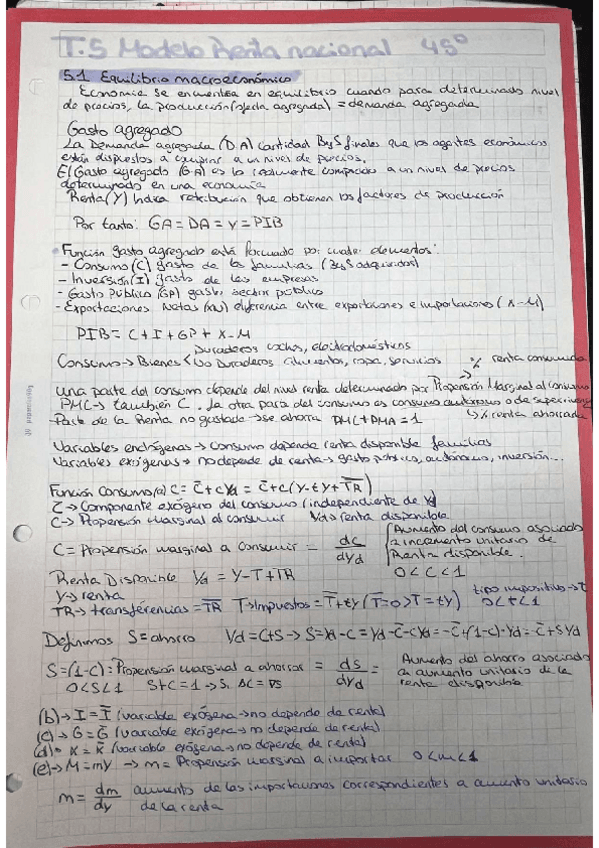 T.5 Modelo Renta nacional 45º
5.1 Equilibrio macroeconómico
Economía se encuentra en equilibrio cuando para determinado nivel
de precios, la producción (oferta agregada) = demanda agregada
Gasto agregado
La Demanda agregada (D.A) cantidad ByS finales que los agentes económicos
están dispuestos a comprar a un nivel de precios.
El Gasto agregado (G.A) es lo realmente comprado a un nivel de precios
determinado en una economía
Renta (Y) Indica retribución que obtienen los factores de producción
Por tanto: GA = DA = Y = PIB
Función gasto agregado está formado por cuatro elementos:
- Consumo (C) gasto de las familias (ByS adquiridos)
- Inversión (I) gasto de las empresas
- Gasto Público (GP) gasto sector público
- Exportaciones Netas (XN) diferencia entre exportaciones e importaciones (X-M)
PIB = C + I + GP + X - M
Duraderos coches, electrodomésticos
Consumo → Bienes < No Duraderos alimentos, ropa, servicios
% renta consumida
Una parte del consumo depende del nivel renta determinado por Propensión Marginal al consumo
PMC → también C. La otra parte del consumo es consumo autónomo o de supervivencia
- Parte de la Renta no gastada → se ahorra PMC + PMA = 1
↳ % renta ahorrada
Variables endógenas → Consumo depende renta disponible familias
Variables exógenas → no depende de renta → gasto público, autónomo, inversión...
Función Consumo (a) C = C̄ + cYd = C̄ + c(Y - tY + T̄R̄)
C̄ → Componente exógeno del consumo (independiente de Yd)
C → Propensión marginal al consumir Yd → renta disponible
C = Propensión marginal a consumir = dc/dyd
Aumento del consumo asociado
a incremento unitario de
Renta disponible.
0 < C < 1
Renta Disponible Yd = Y - T + TR
Y → renta
TR → transferencias = T̄R̄ T → Impuestos = T̄ + tY (T̄ = 0 > T = tY)
tipo impositivo → t
0 < t < 1
Definimos S = ahorro Yd = C + S → S = Yd - C = Yd - C̄ - cYd = -C̄ + (1 - c)·Yd = C̄ + SYd
S = (1 - C) = Propensión marginal a ahorrar = ds/dyd =
Aumento del ahorro asociado
a aumento unitario de la
renta disponible
0 < S < 1 S + C = 1 → Si ΔC = ∇S
(b) → I = Ī (variable exógena → no depende de renta)
(c) → G = Ḡ (variable exógena → no depende de renta)
(d) → X = X̄ (variable exógena → no depende de renta)
(e) → M = mY → m = Propensión marginal a importar 0 < m < 1
m = dm/dy aumento de las importaciones correspondientes a aumento unitario
de la renta